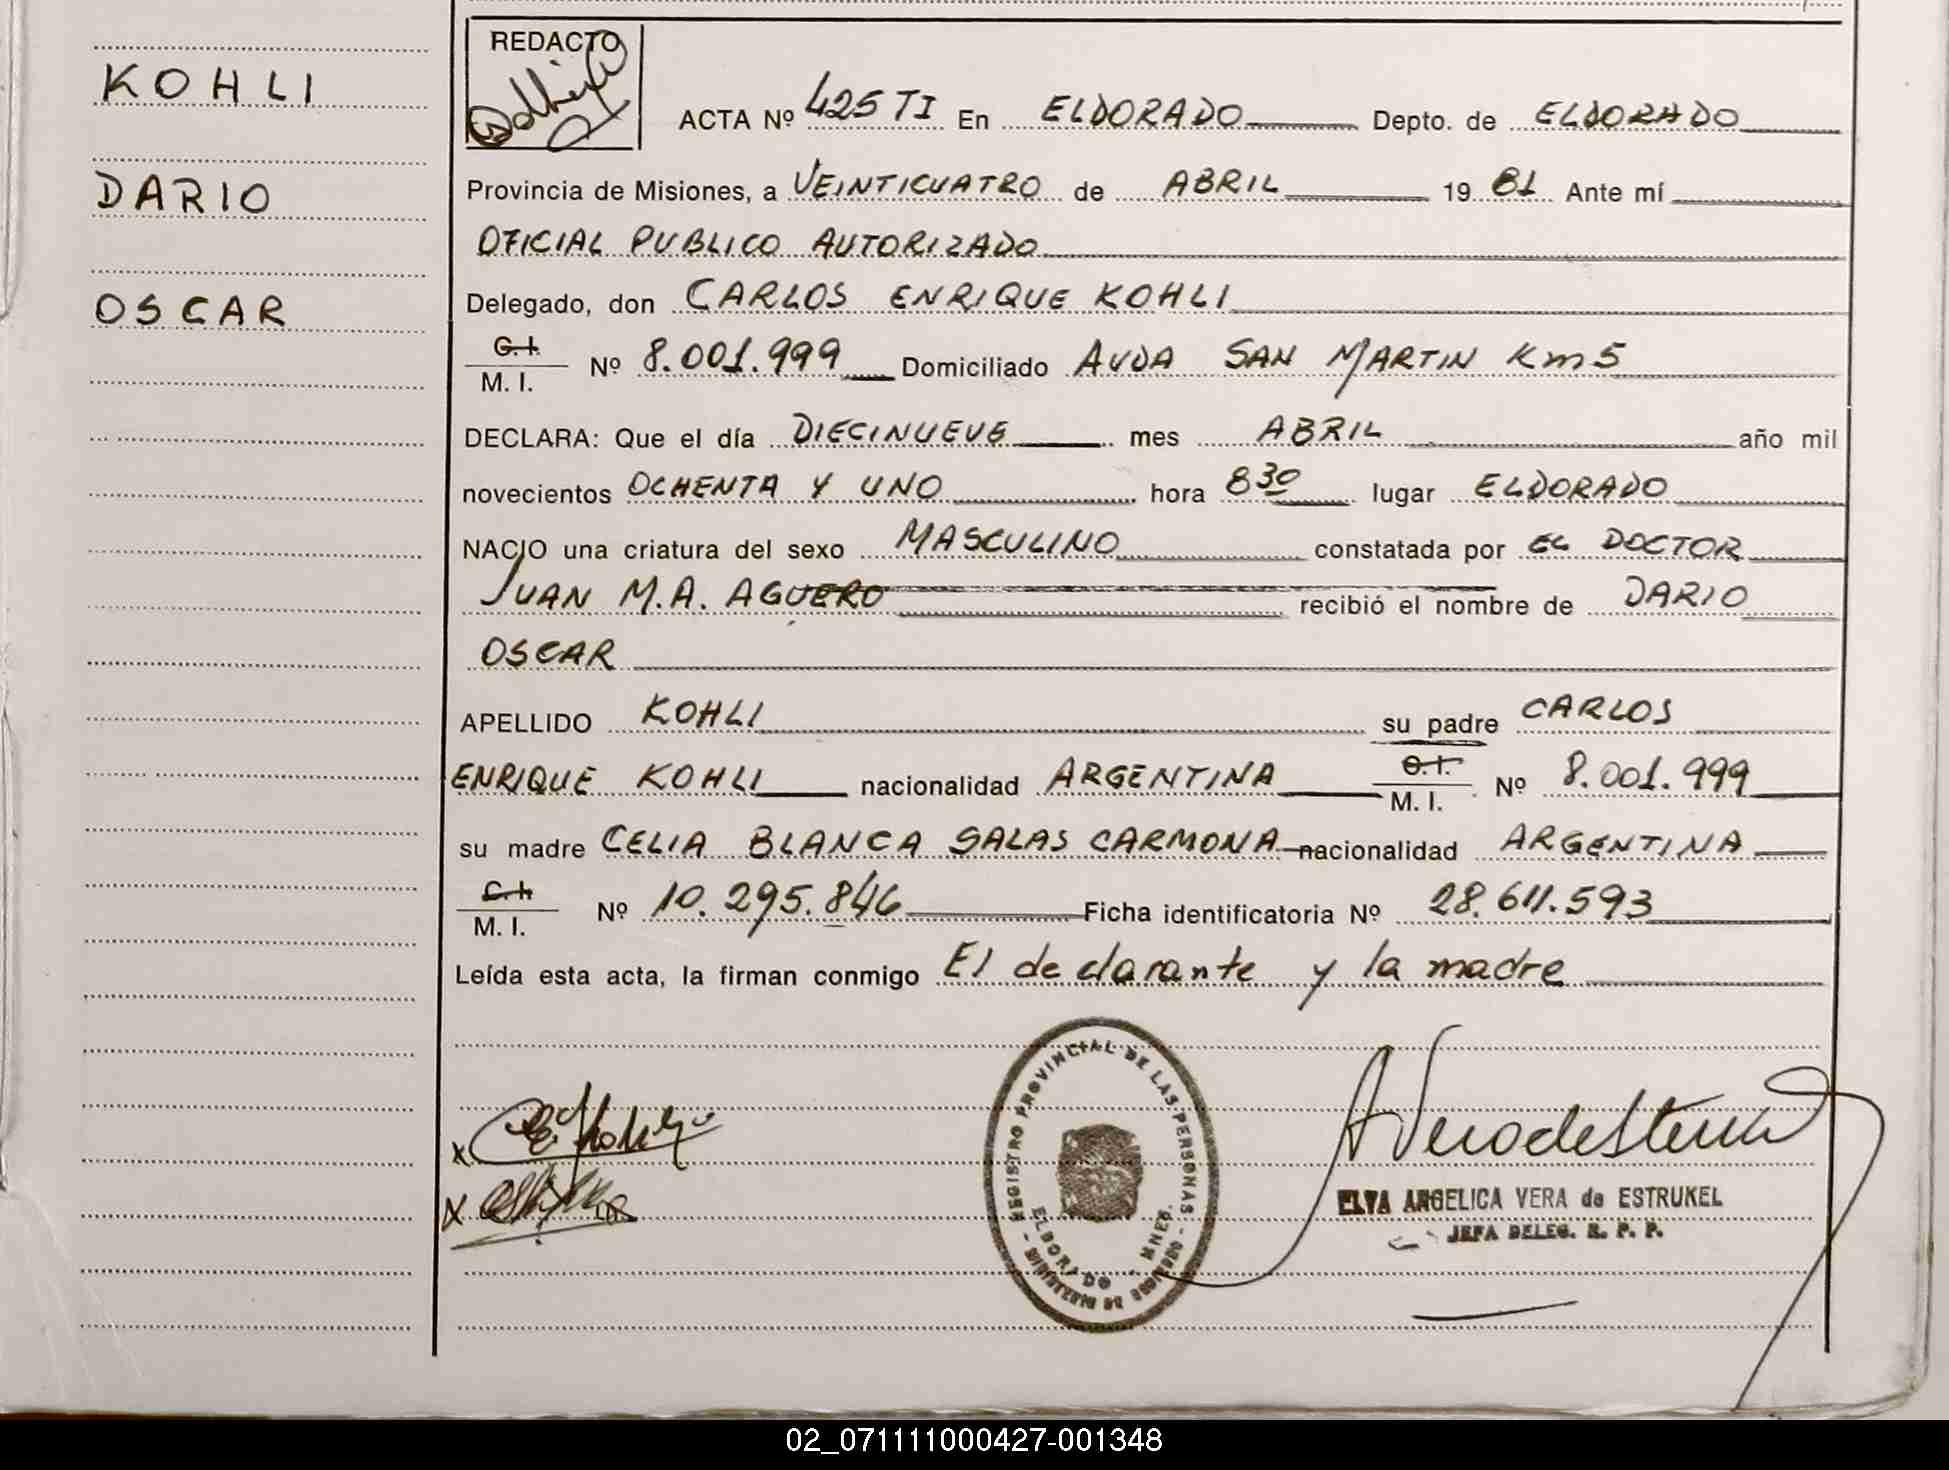 KOHLI
DARIO
OSCAR
REDACTO
ACTA Nº 425 TI En ELDORADO Depto. de ELDORADO
Provincia de Misiones, a VEINTICUATRO de ABRIL 19 81 Ante mí
OFICIAL PUBLICO AUTORIZADO
Delegado, don CARLOS ENRIQUE KOHLI
C.I.
M. I. Nº 8.001.999 Domiciliado AVDA SAN MARTIN Km 5
DECLARA: Que el día DIECINUEVE mes ABRIL año mil
novecientos OCHENTA Y UNO hora 8 30 lugar ELDORADO
NACIO una criatura del sexo MASCULINO constatada por EL DOCTOR
JUAN M.A. AGUERO recibió el nombre de DARIO
OSCAR
APELLIDO KOHLI su padre CARLOS
ENRIQUE KOHLI nacionalidad ARGENTINA C.I.
M. I. Nº 8.001.999
su madre CELIA BLANCA SALAS CARMONA nacionalidad ARGENTINA
C.I.
M. I. Nº 10.295.846 Ficha identificatoria Nº 28.611.593
Leída esta acta, la firman conmigo El declarante y la madre
REGISTRO PROVINCIAL DE LAS PERSONAS
ELDORADO - MNES.
ELVA ANGELICA VERA de ESTRUKEL
JEFA DELEG. R. P. P.
02_071111000427-001348